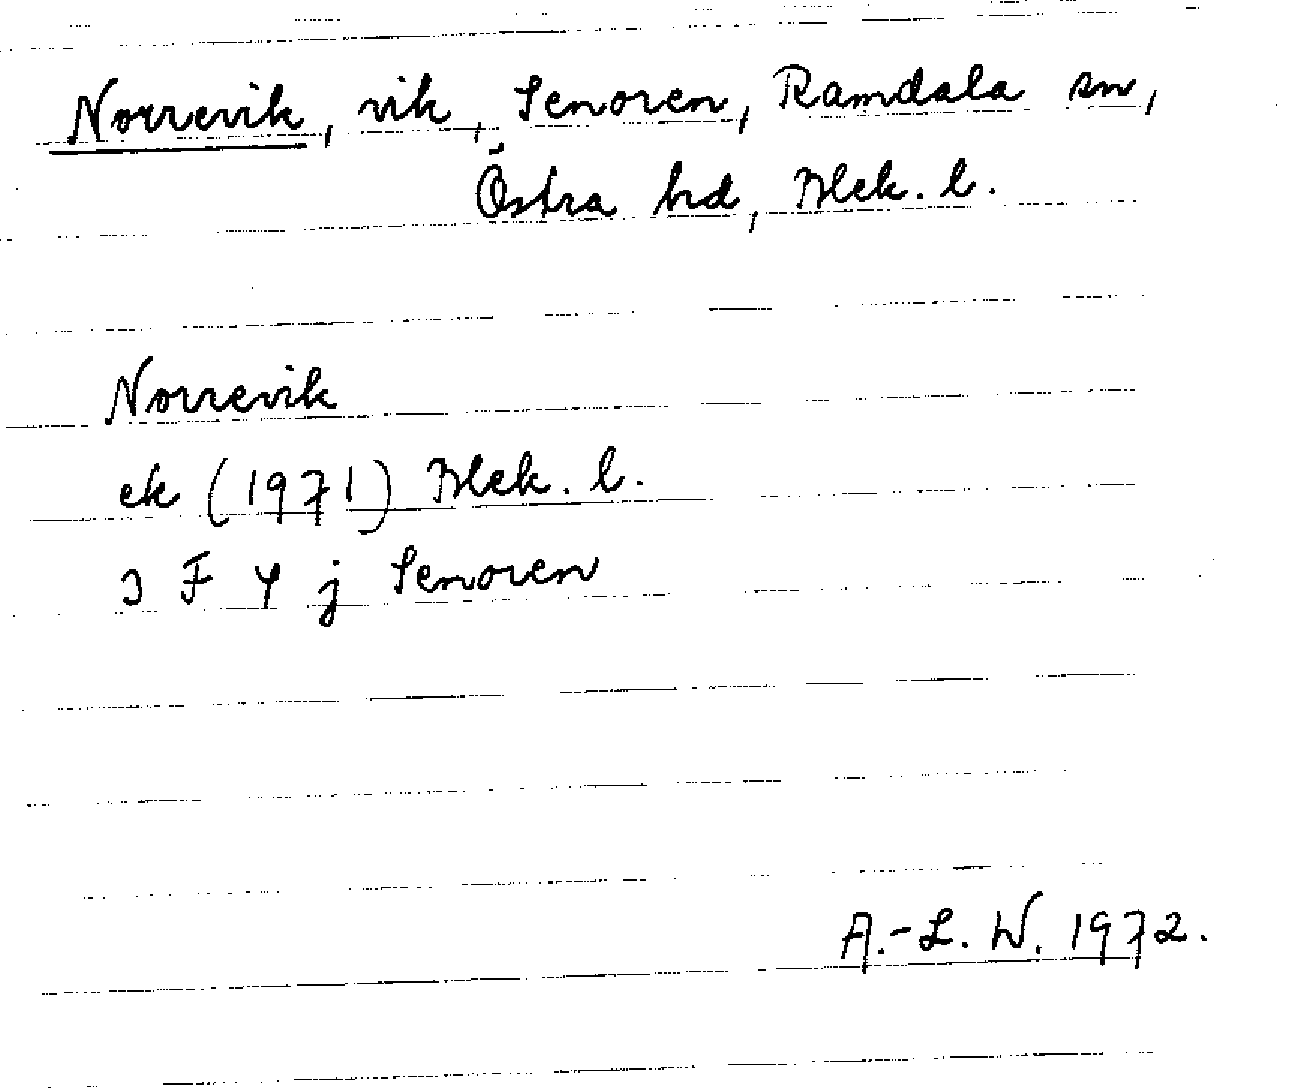 Norrevik, vik, Senoren, Ramdala sn,
Östra hd, Blek. l.
Norrevik
ek (1971) Blek. l.
3 F 4 j Senoren
A.-L. W. 1972.